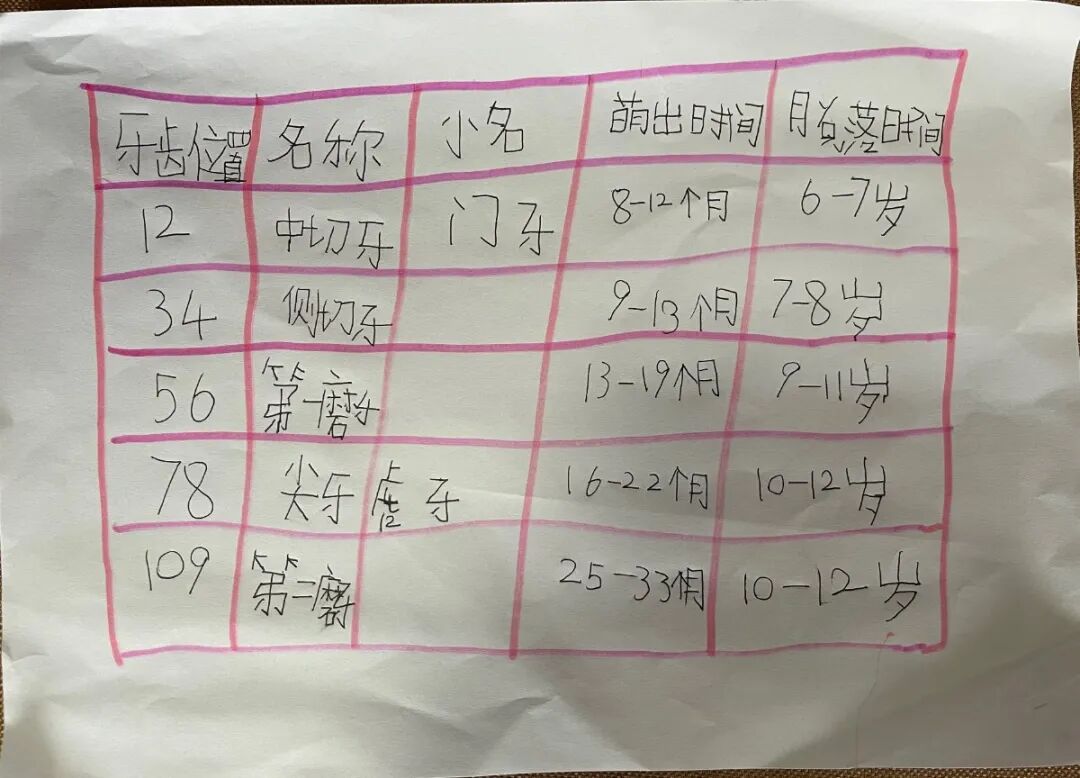 牙齿位置 名称 小名 萌出时间 脱落时间
12 中切牙 门牙 8-12个月 6-7岁
34 侧切牙 9-13个月 7-8岁
56 第一磨牙 13-19个月 9-11岁
78 尖牙 虎牙 16-22个月 10-12岁
109 第二磨牙 25-33个月 10-12岁